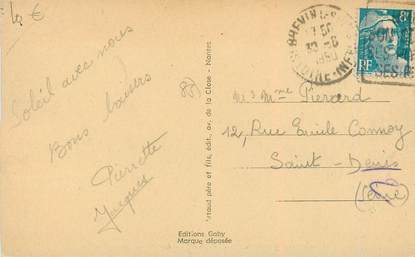 10 €
Soleil avec nous
Bons baisers
Pierrette
Jacques
Artaud père et fils, édit., av. de la Close - Nantes
Editions Gaby
Marque déposée
BREVIN
1950
8F
RF
Mr Mme Pierard
12, Rue Emile Connoy
Saint-Denis
(Seine)